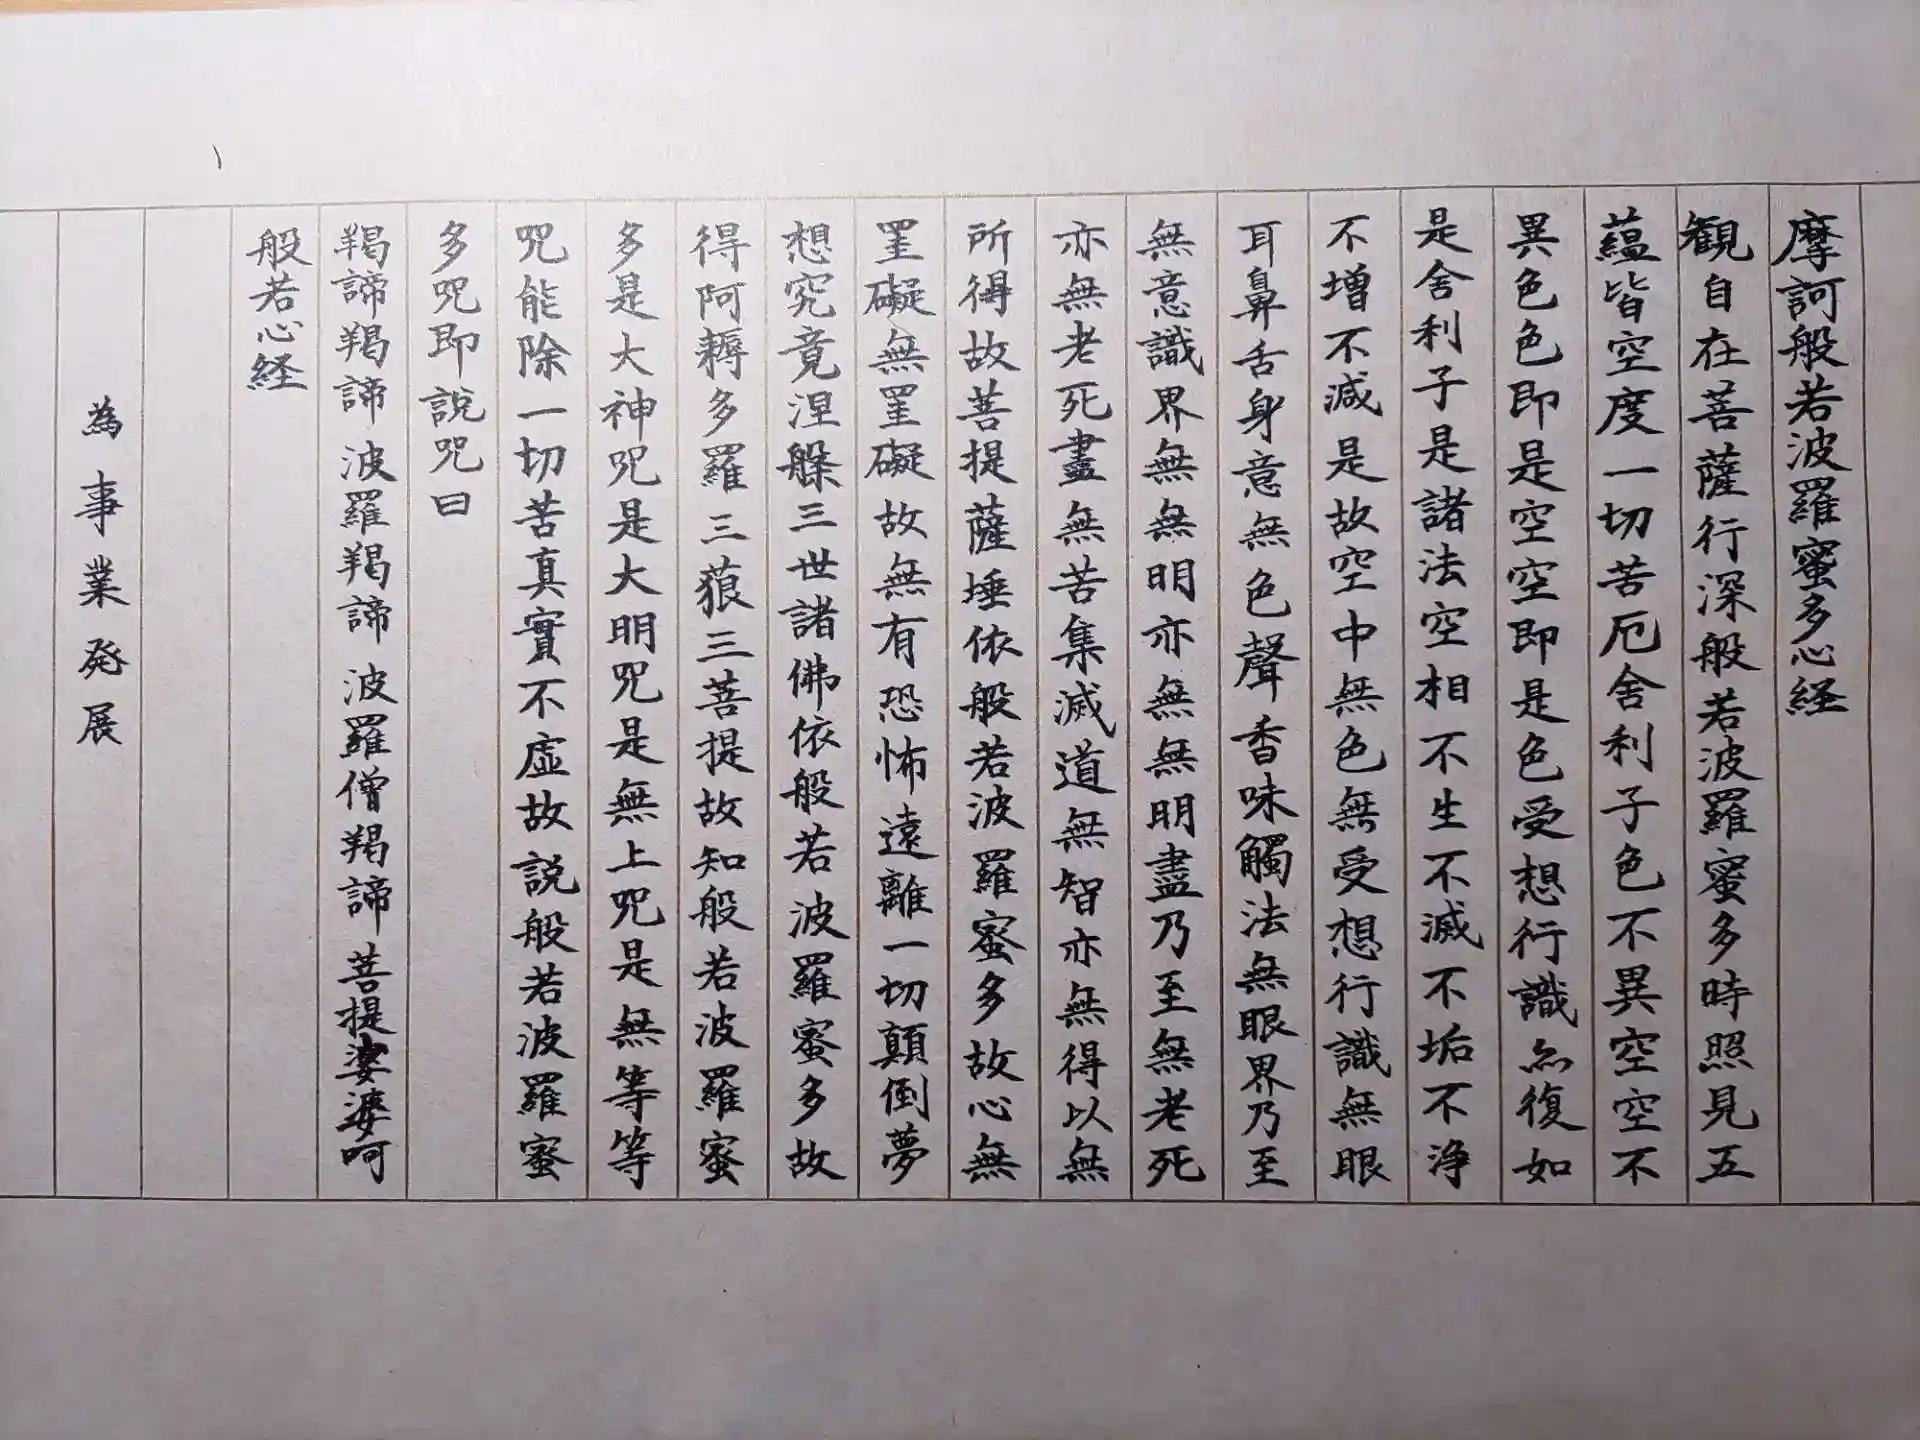 摩訶般若波羅蜜多心経
観自在菩薩行深般若波羅蜜多時照見五
蘊皆空度一切苦厄舍利子色不異空空不
異色色即是空空即是色受想行識亦復如
是舍利子是諸法空相不生不滅不垢不浄
不増不減是故空中無色無受想行識無眼
耳鼻舌身意無色聲香味觸法無眼界乃至
無意識界無無明亦無無明盡乃至無老死
亦無老死盡無苦集滅道無智亦無得以無
所得故菩提薩埵依般若波羅蜜多故心無
罣礙無罣礙故無有恐怖遠離一切顛倒夢
想究竟涅槃三世諸佛依般若波羅蜜多故
得阿耨多羅三藐三菩提故知般若波羅蜜
多是大神咒是大明咒是無上咒是無等等
咒能除一切苦真實不虚故説般若波羅蜜
多咒即說咒曰
羯諦羯諦波羅羯諦波羅僧羯諦菩提婆婆呵
般若心経
為事業発展